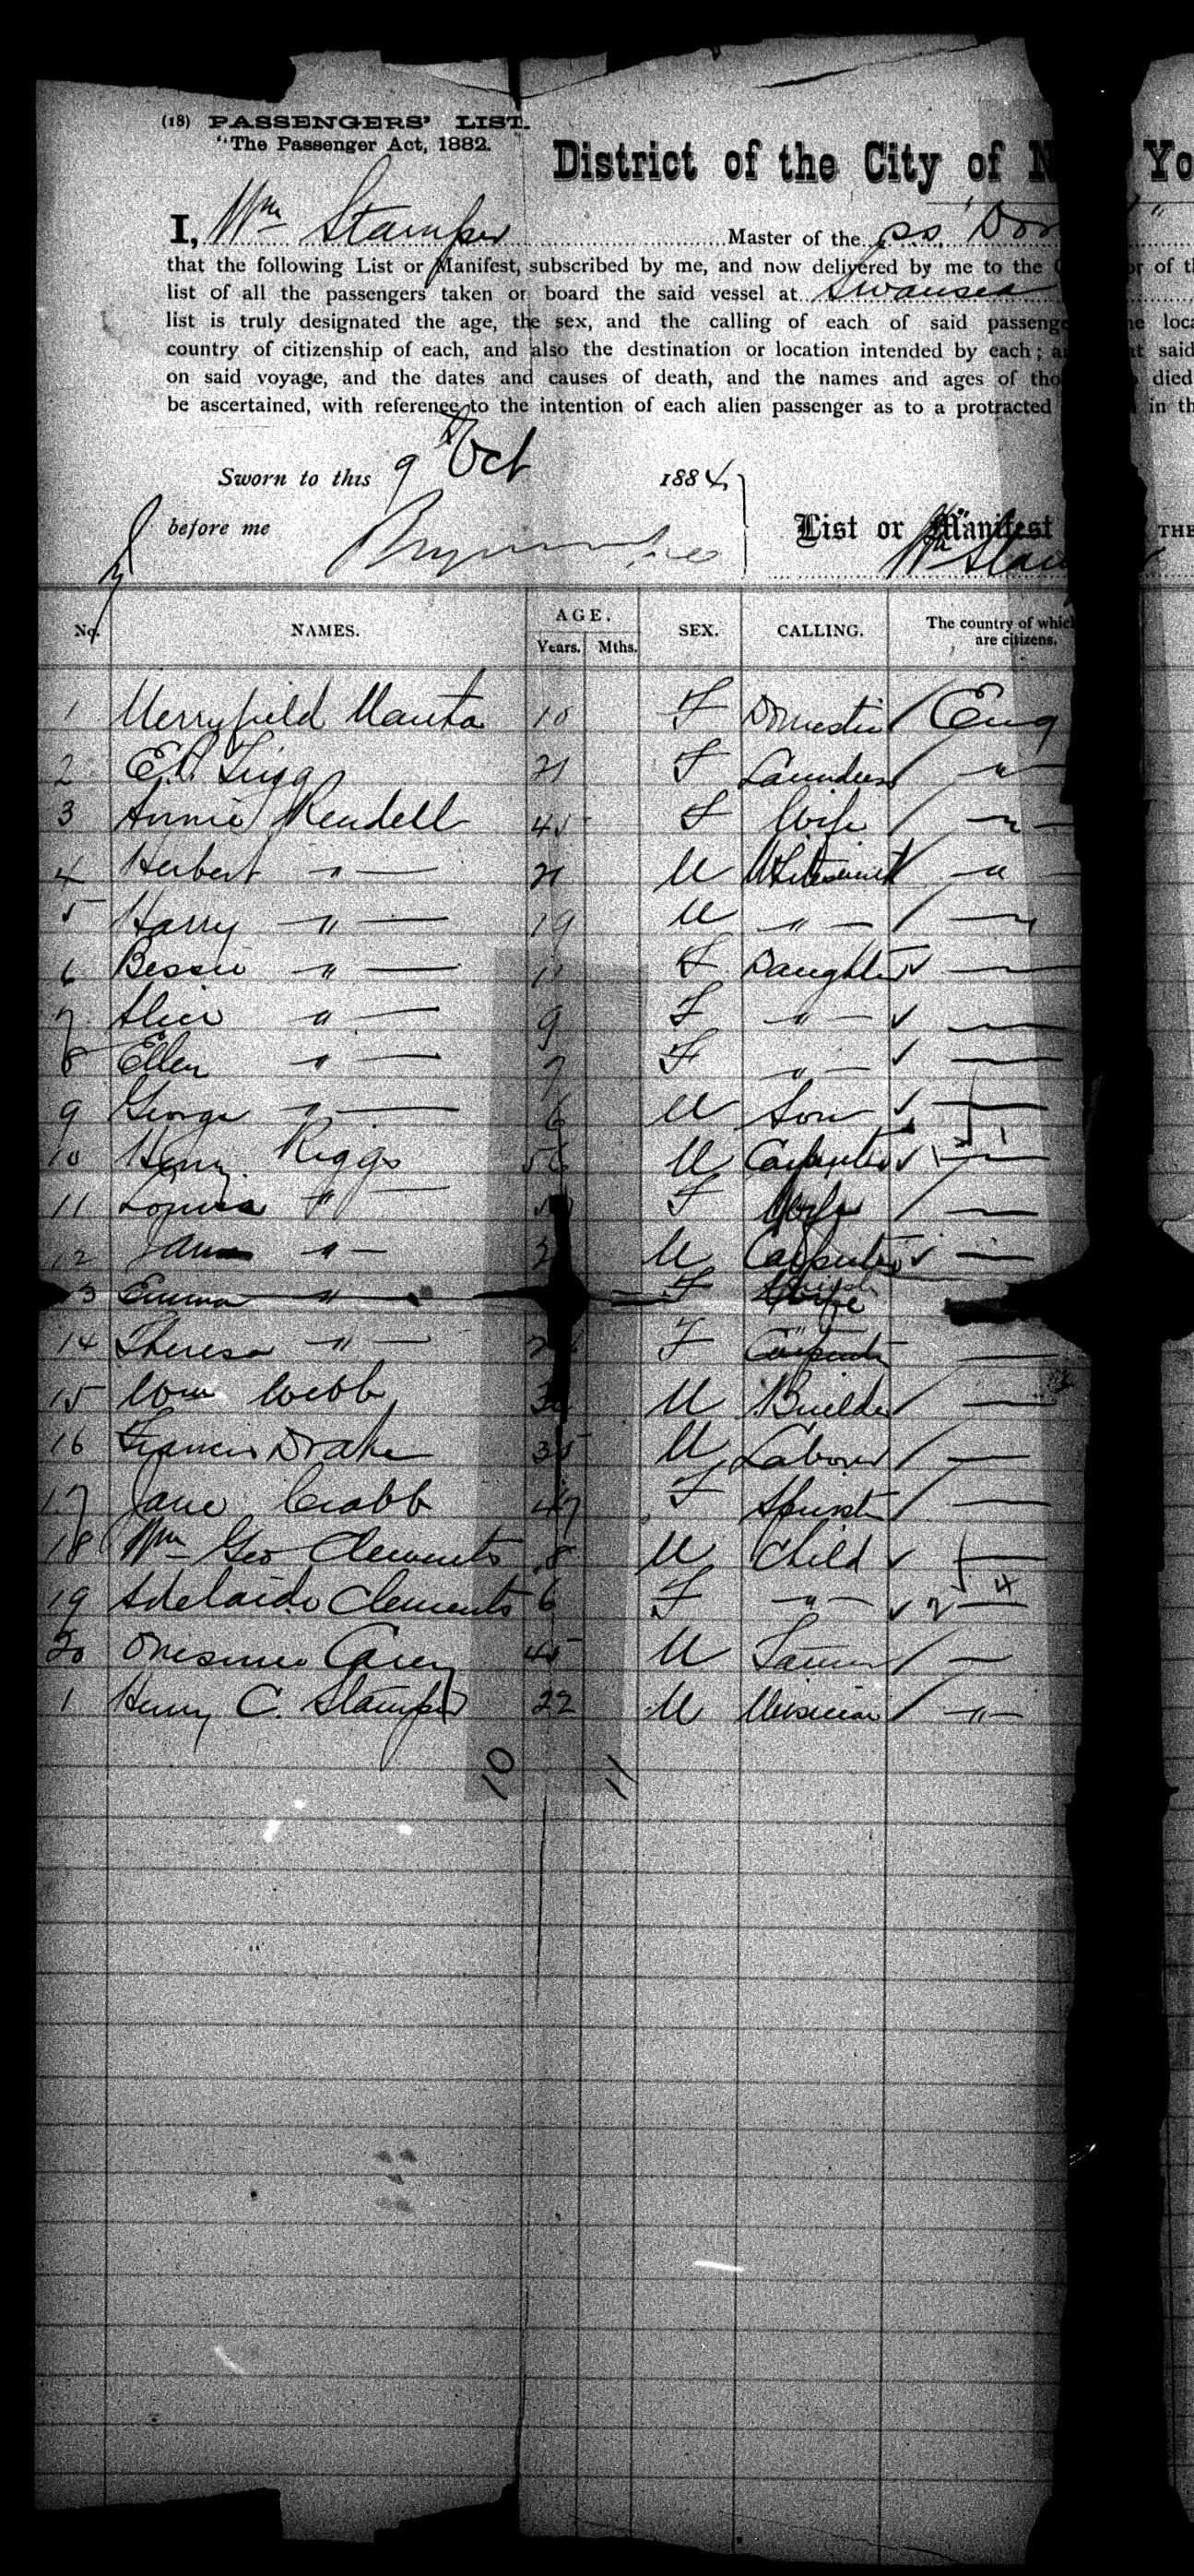 (18) PASSENGERS' LIST.
"The Passenger Act, 1882.
District of the City of N Yo
I, Wm Stamper Master of the ss. "Dor "
that the following List or Manifest, subscribed by me, and now delivered by me to the C or of th
list of all the passengers taken or board the said vessel at Swansea
list is truly designated the age, the sex, and the calling of each of said passenge he loca
country of citizenship of each, and also the destination or location intended by each; a at said
on said voyage, and the dates and causes of death, and the names and ages of tho died
be ascertained, with reference to the intention of each alien passenger as to a protracted in th
Sworn to this 9th Oct 1884
before me
List or Manifest THE
Wm Stam
No. NAMES. AGE. Years. Mths. SEX. CALLING. The country of which are citizens.
1 Merryfield 10 F Domestic / Eng
2 21 F Laundress / "
3 Annie Rendell 45 F Wife / "
4 Herbert " 21 M Whitesmith "
5 Harry " 19 M " / "
6 Bessie " 11 F Daughter ✓
7 Alice " 9 F " ✓
8 Ellen " 7 F " ✓
9 George " 6 M Son ✓
10 Henry Riggs 56 M Carpenter ✓
11 Louisa " F Wife /
12 James " 2 M Carpenter ✓
3 Emma " F Wife
14 Theresa " 2 F " Carpenter
15 Wm Webb 3 M Builder /
16 Francis Drake 35 M Laborer /
17 Jane Crabb 47 F Spinster /
18 Wm Geo Clements 8 M Child ✓
19 Adelaide Clements 6 F " ✓ 2 4
20 Carey 45 M Farmer /
1 Henry C. Stamper 22 M Musician / "
10 11